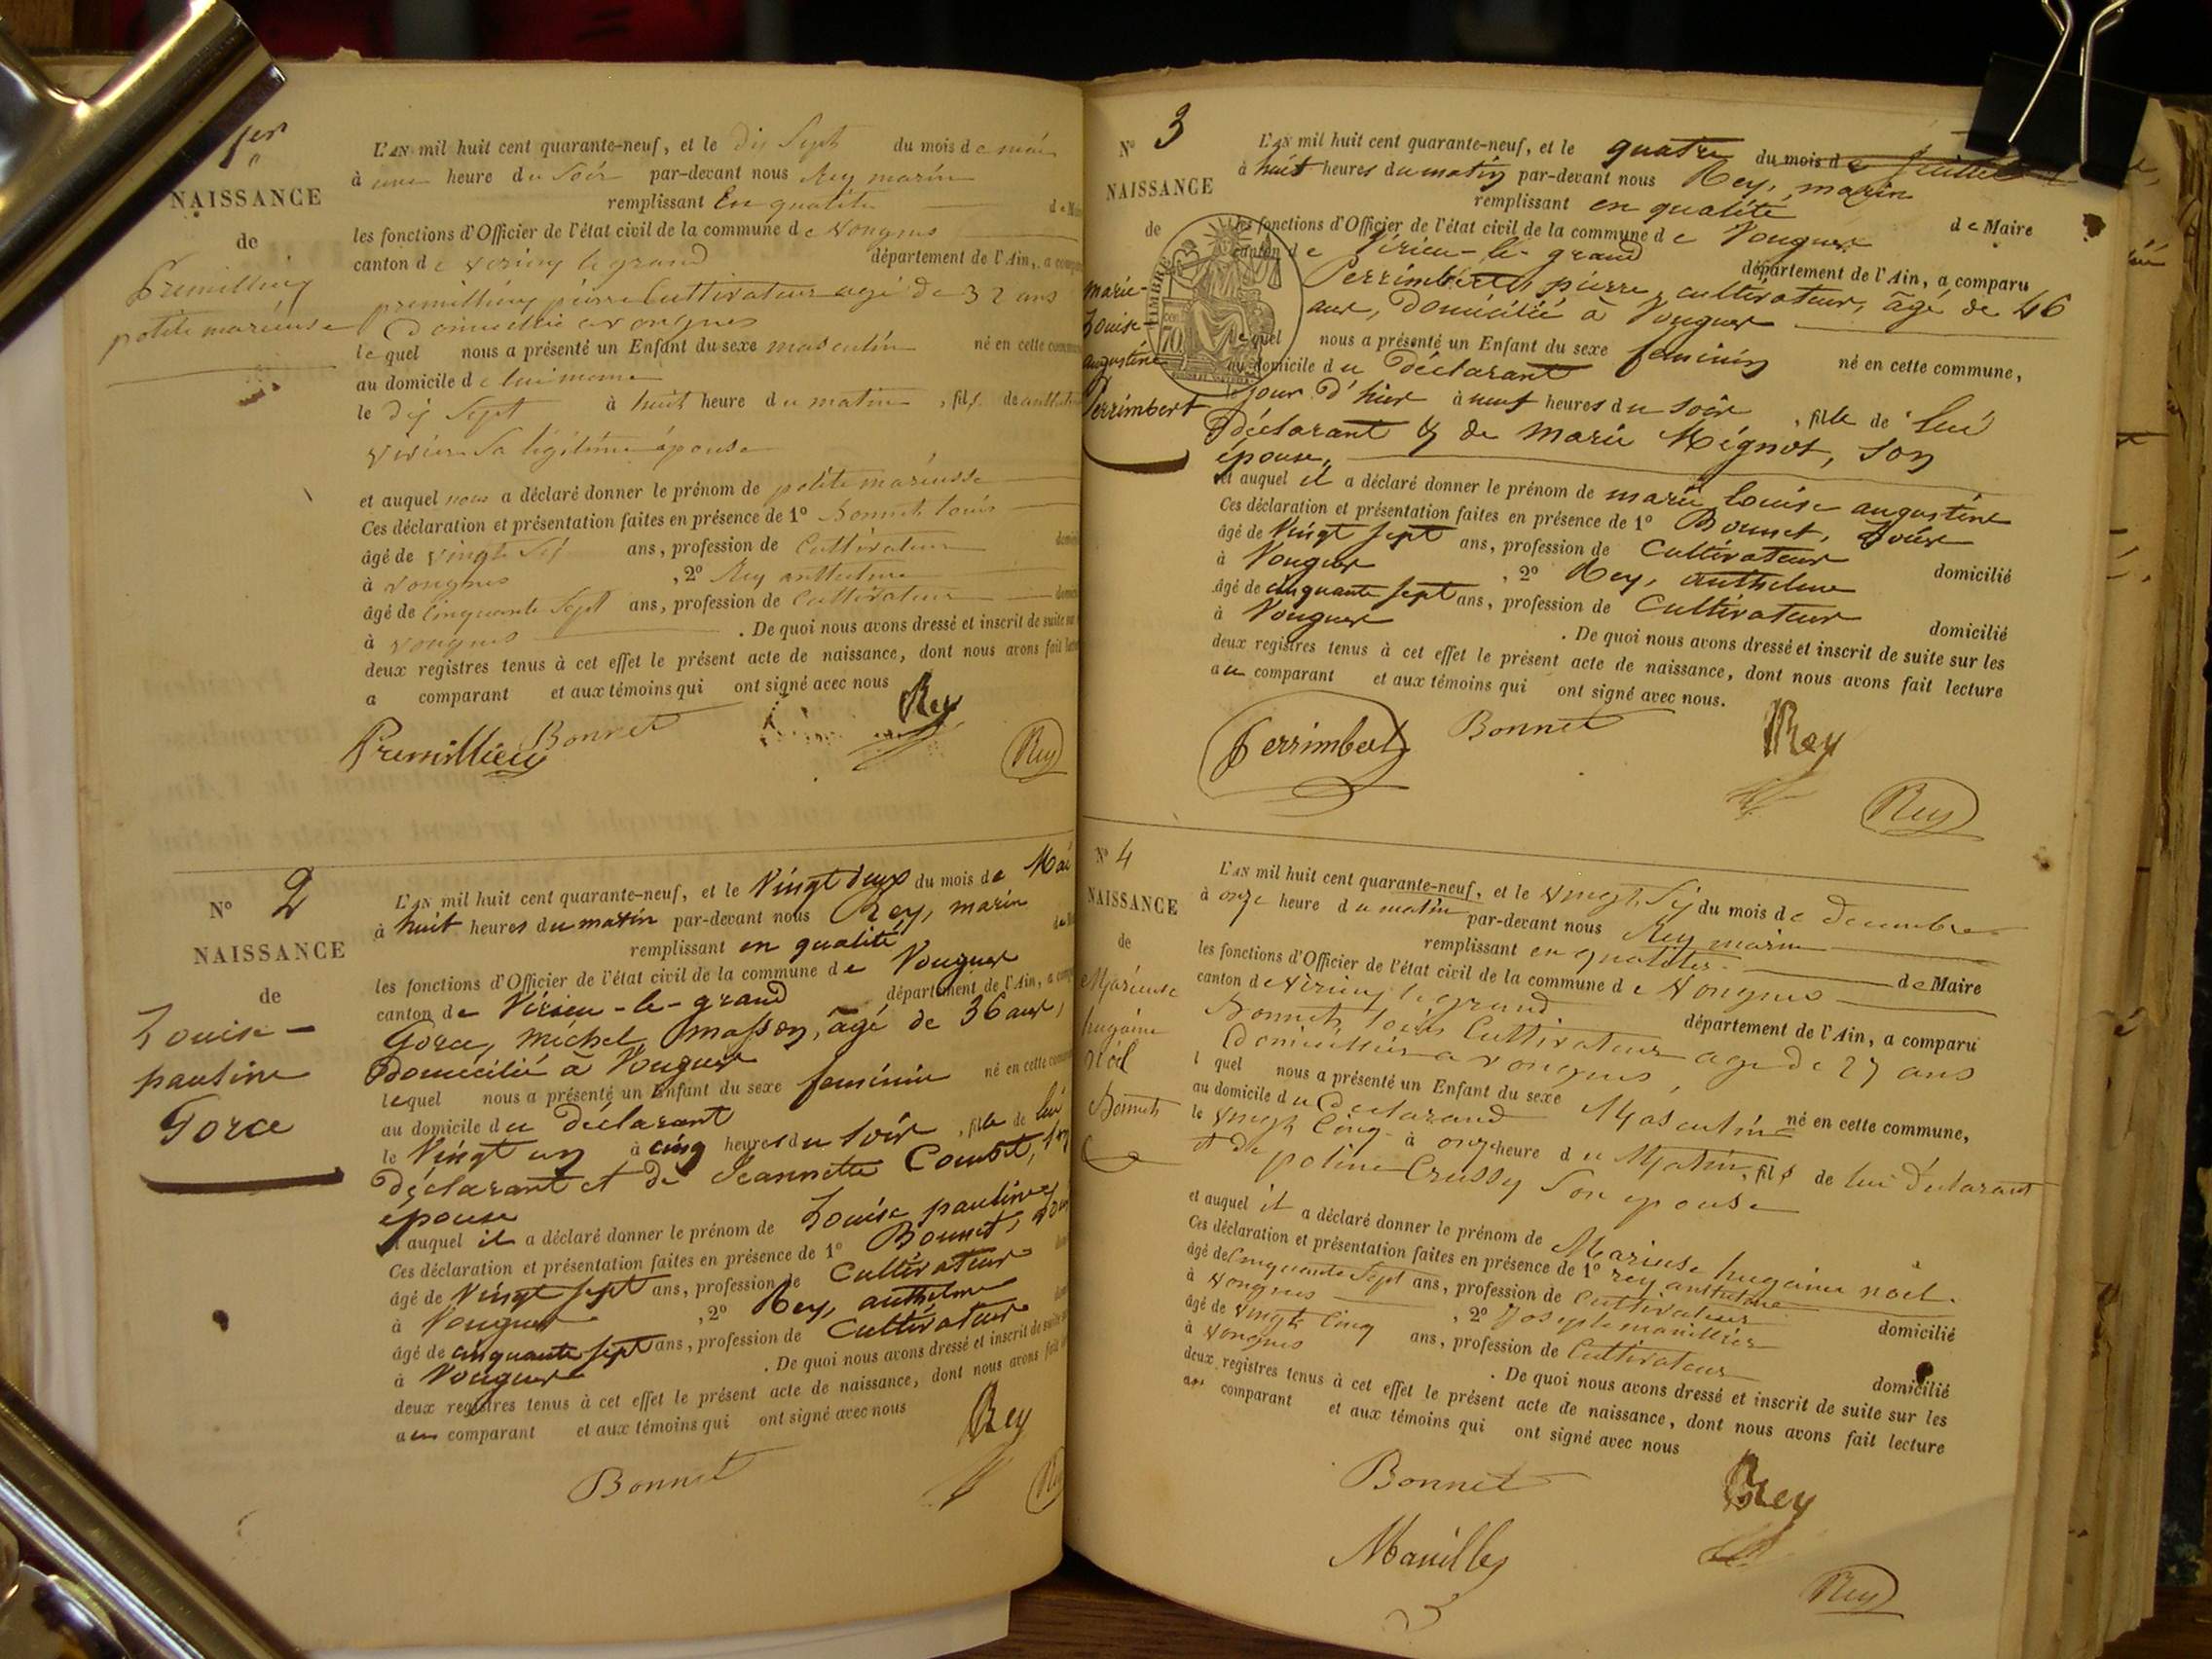 1er
NAISSANCE
de
Premillieu
polite marieusse
L'AN mil huit cent quarante-neuf, et le dix Sept du mois de mai
à une heure du Soir par-devant nous Rey marin
remplissant En qualité de Maire
les fonctions d'Officier de l'état civil de la commune de Vongnes
canton de virieu le grand département de l'Ain, a comparu
premillieu pierre Cultivateur agé de 32 ans
Domicillié a vongnes
lequel nous a présenté un Enfant du sexe masculin né en cette commune
au domicile de lui meme
le dix Sept à huit heure du matin, fils de
vivier Sa légitime épouse
et auquel nous a déclaré donner le prénom de polite marieusse
Ces déclaration et présentation faites en présence de 1° Bonnet louis
âgé de vingt Sept ans, profession de Cultivateur
à vongnes, 2° Rey anthelme
âgé de Cinquante Sept ans, profession de Cultivateur
à vongnes. De quoi nous avons dressé et inscrit de suite sur
deux registres tenus à cet effet le présent acte de naissance, dont nous avons fait lecture
a comparant et aux témoins qui ont signé avec nous
Premillieu Bonnet Rey
Rey
N° 2
NAISSANCE
de
Louise-
pauline
Gorce
L'AN mil huit cent quarante-neuf, et le Vingt deux du mois de Mai
à huit heures du matin par-devant nous Rey, marin
remplissant en qualité
les fonctions d'Officier de l'état civil de la commune de Vongnes
canton de Virieu-le-grand département de l'Ain, a comparu
Gorce, michel, masson, âgé de 36 ans,
domicilié à Vongnes
lequel nous a présenté un Enfant du sexe feminin né en cette commune
au domicile du déclarant
le Vingt un à cinq heures du soir, fille de lui
déclarant et de Jeannette Combet, son
épouse
et auquel il a déclaré donner le prénom de Louise pauline
Ces déclaration et présentation faites en présence de 1° Bonnet, Louis
âgé de Vingt sept ans, profession de Cultivateur
à Vongnes, 2° Rey, anthelme
âgé de cinquante sept ans, profession de Cultivateur
à Vongnes. De quoi nous avons dressé et inscrit de suite
deux registres tenus à cet effet le présent acte de naissance, dont nous avons fait
au comparant et aux témoins qui ont signé avec nous
Bonnet Rey
N° 3
NAISSANCE
de
marie-
Louise-
augustine
Perrimbert
TIMBRE
70
L'AN mil huit cent quarante-neuf, et le quatre du mois de Juillet
à huit heures du matin par-devant nous Rey, marin
remplissant en qualité de Maire
les fonctions d'Officier de l'état civil de la commune de Vongnes
canton de Virieu-le-grand département de l'Ain, a comparu
Perrimbert, pierre, cultivateur, âgé de 46
ans, domicilié à Vongnes
lequel nous a présenté un Enfant du sexe feminin né en cette commune,
au domicile du déclarant
le jour d'hier à neuf heures du soir, fille de lui
déclarant & de marie Mégnot, son
épouse,
et auquel il a déclaré donner le prénom de marie louise augustine
Ces déclaration et présentation faites en présence de 1° Bonnet, Louis
âgé de Vingt sept ans, profession de Cultivateur domicilié
à Vongnes, 2° Rey, anthelme
âgé de cinquante sept ans, profession de Cultivateur domicilié
à Vongnes. De quoi nous avons dressé et inscrit de suite sur les
deux registres tenus à cet effet le présent acte de naissance, dont nous avons fait lecture
au comparant et aux témoins qui ont signé avec nous.
Perrimbert Bonnet Rey
Rey
N° 4
NAISSANCE
de
Marieuse
hugaine
noel
Bonnet
L'AN mil huit cent quarante-neuf, et le vingt Six du mois de decembre
à onze heure du matin par-devant nous Rey marin
remplissant en qualité de Maire
les fonctions d'Officier de l'état civil de la commune de Vongnes
canton de virieu le grand département de l'Ain, a comparu
Bonnet louis Cultivateur agé de 27 ans
Domicillié a vongnes,
lequel nous a présenté un Enfant du sexe Masculin né en cette commune,
au domicile du declarand
le vingt Cinq à onze heure du Matin, fils de lui déclarant
et de poline Crussy Son epouse
et auquel il a déclaré donner le prénom de Mariuse hugaine noël.
Ces déclaration et présentation faites en présence de 1° rey anthelme
âgé de Cinquante Sept ans, profession de Cultivateur domicilié
à Vongnes, 2° Joseph manillier
âgé de vingt Cinq ans, profession de Cultivateur domicilié
à Vongnes. De quoi nous avons dressé et inscrit de suite sur les
deux registres tenus à cet effet le présent acte de naissance, dont nous avons fait lecture
au comparant et aux témoins qui ont signé avec nous
Bonnet Rey
Rey